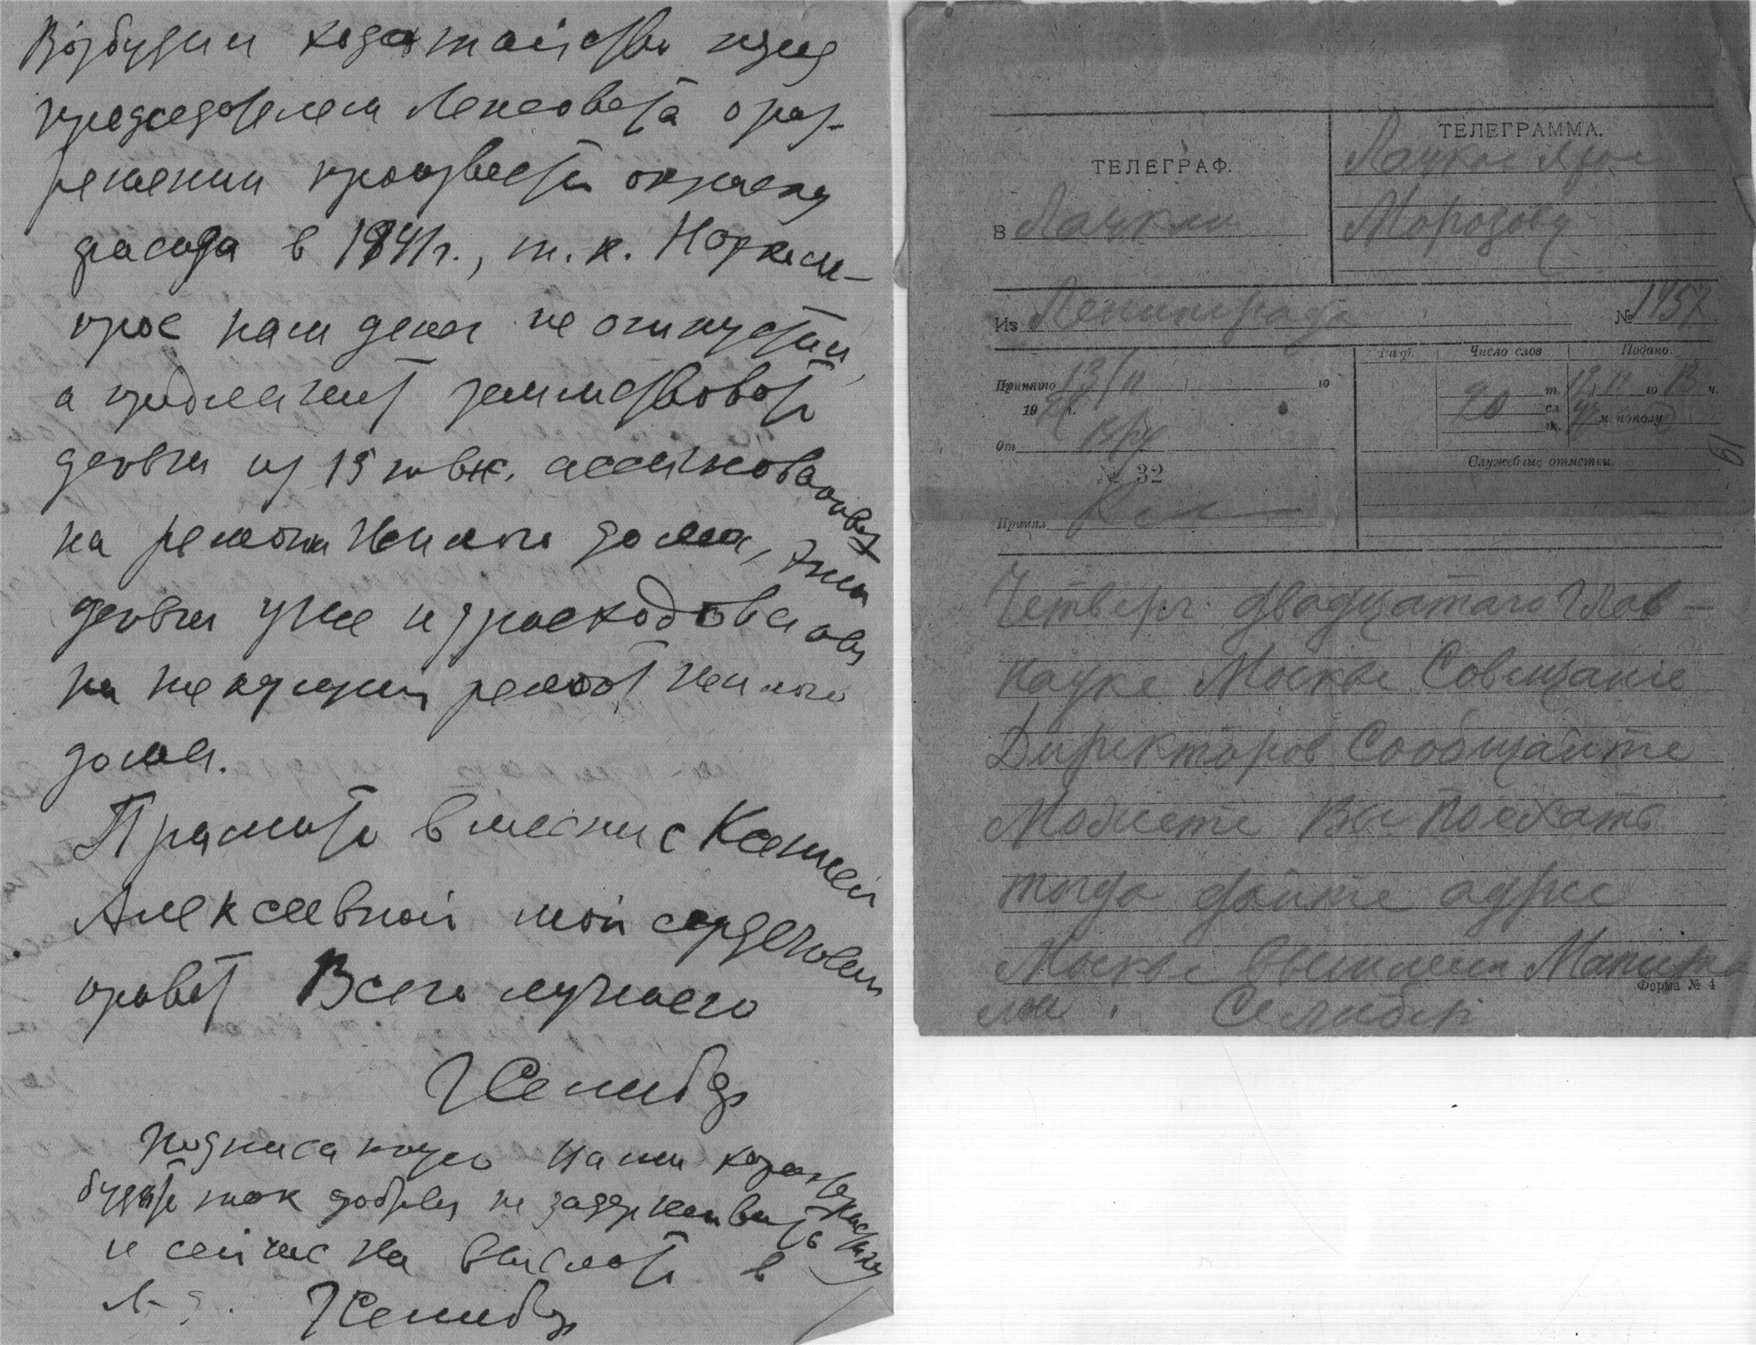 Возбудили ходатайство перед
председателем Ленсовета о раз-
решении произвести окраску
фасада в 1941г., т.к. Наркам-
прос нам денег не отпустил,
а предлагает заимствовать
деньги из 15 тысяч. ассигнованных
на ремонт жилого дома, эти
деньги уже израсходованы
на текущий ремонт жилого
дома.
Примите вместе с Ксенией
Алексеевной мой сердечный
привет Всего лучшего
ГСелибер
Подписанную Вами
будьте так добры не задерживать
и сейчас же выслать в
Л-д. ГСелибер
ТЕЛЕГРАФ.
В
ТЕЛЕГРАММА.
Морозову
Из Ленинграда
№ 1457
Принято 13/II го
19 г.
От
№ 32
Принял
Разр.
Число слов
20
Подано.
го 13 ч.
м. пополу
Служебные отметки.
19
Четверг двадцатого Глав-
науке Москве Совещание
Директоров Сообщайте
Можете Вы Поехать
тогда дайте адрес
Москве вышлем Матириа
лы. Селибер
Форма № 4